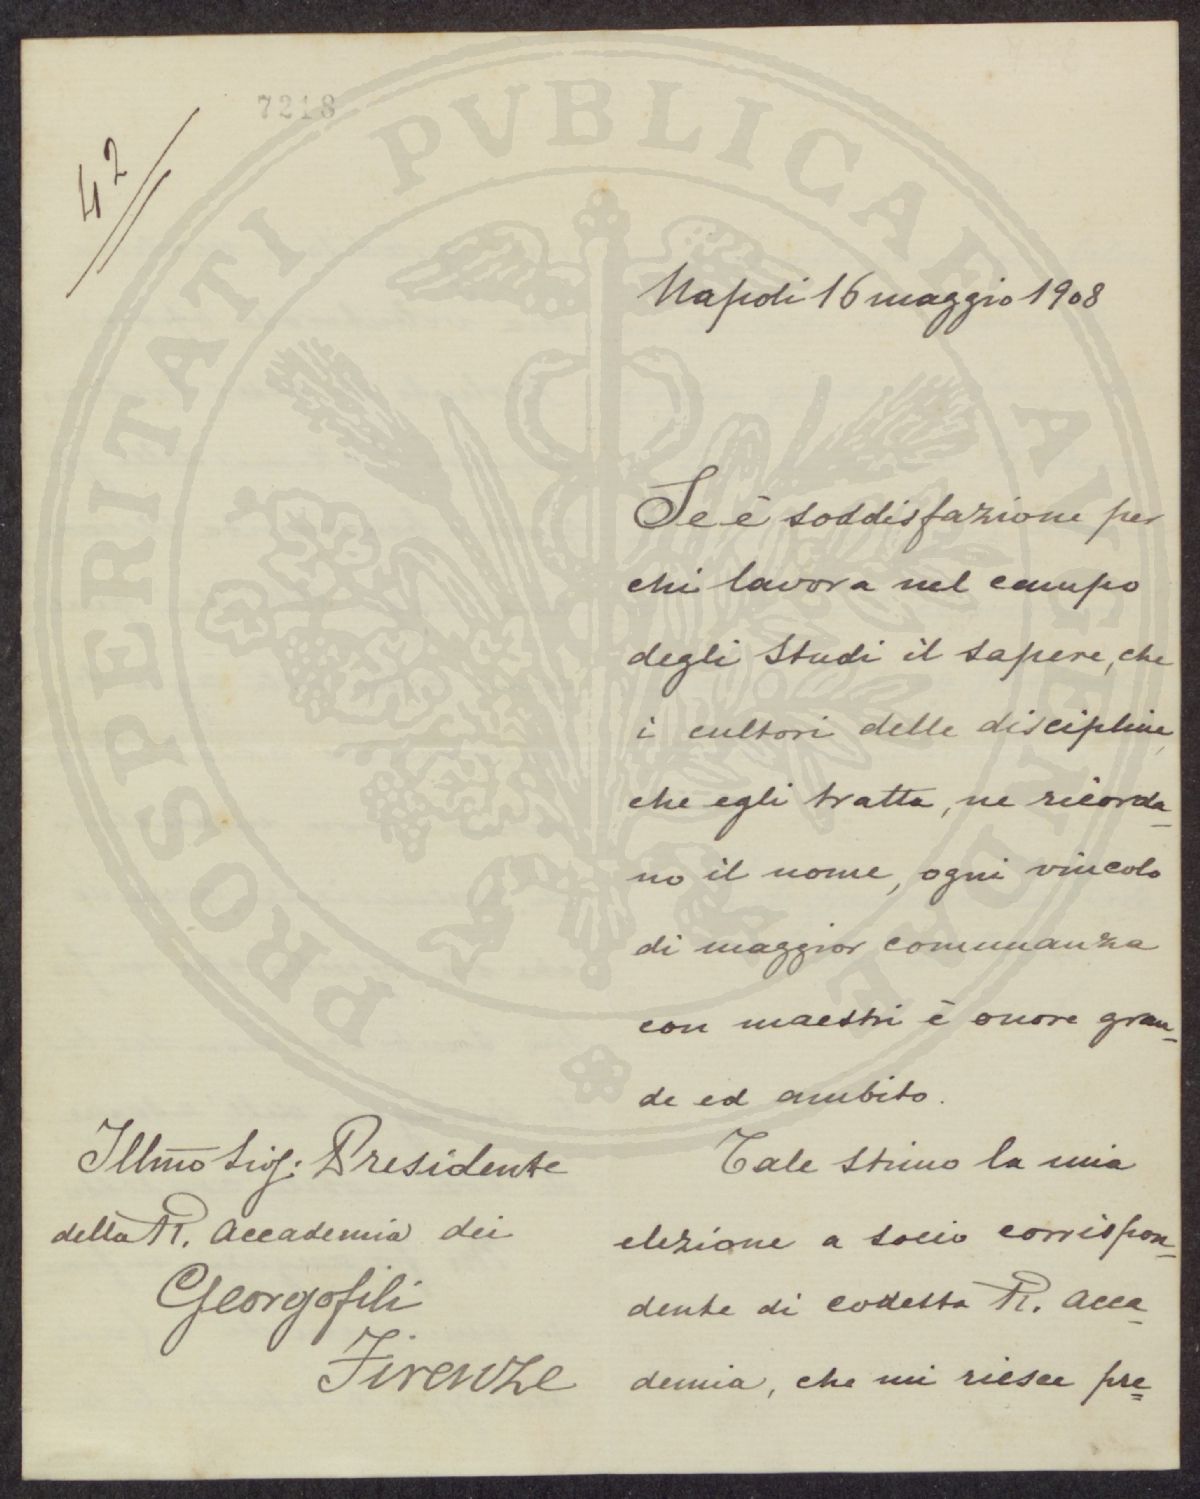 7218
42
Napoli 16 maggio 1908
Se è soddisfazione per
chi lavora nel campo
degli studi il sapere, che
i cultori delle discipline,
che egli tratta, ne ricorda-
no il nome, ogni vincolo
di maggior comunanza
con maestri è onore gran-
de ed ambito.
Tale stimo la mia
elezione a socio corrispon-
dente di codesta R. Acca-
demia, che mi riesce pre=
Illmo Sig: Presidente
della R. Accademia dei
Georgofili
Firenze
PROSPERITATI PVBLICAE AVGENDAE